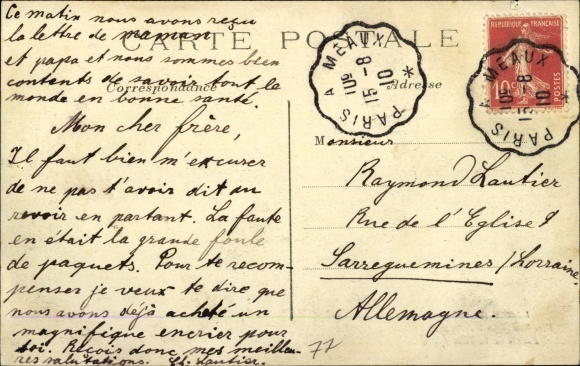 Ce matin nous avons reçu
la lettre de maman
et papa et nous sommes bien
contents de savoir tout le
monde en bonne santé.
CARTE POSTALE
Correspondance
Adresse
Mon cher frère,
Il faut bien m'excuser
de ne pas t'avoir dit au
revoir en partant. La faute
en était la grande foule
de paquets. Pour te recom-
penser je veux te dire que
nous avons déjà acheté un
magnifique encrier pour
toi. Reçois donc mes meilleu-
res salutations. Ch. Lautier.
72
Monsieur
Raymond Lautier
Rue de l'Eglise 9
Sarreguemines/Lorraine.
Allemagne.
PARIS A MEAUX
15-8
10
*
REPUBLIQUE FRANÇAISE
POSTES
10c
PARIS A MEAUX
8
10
*